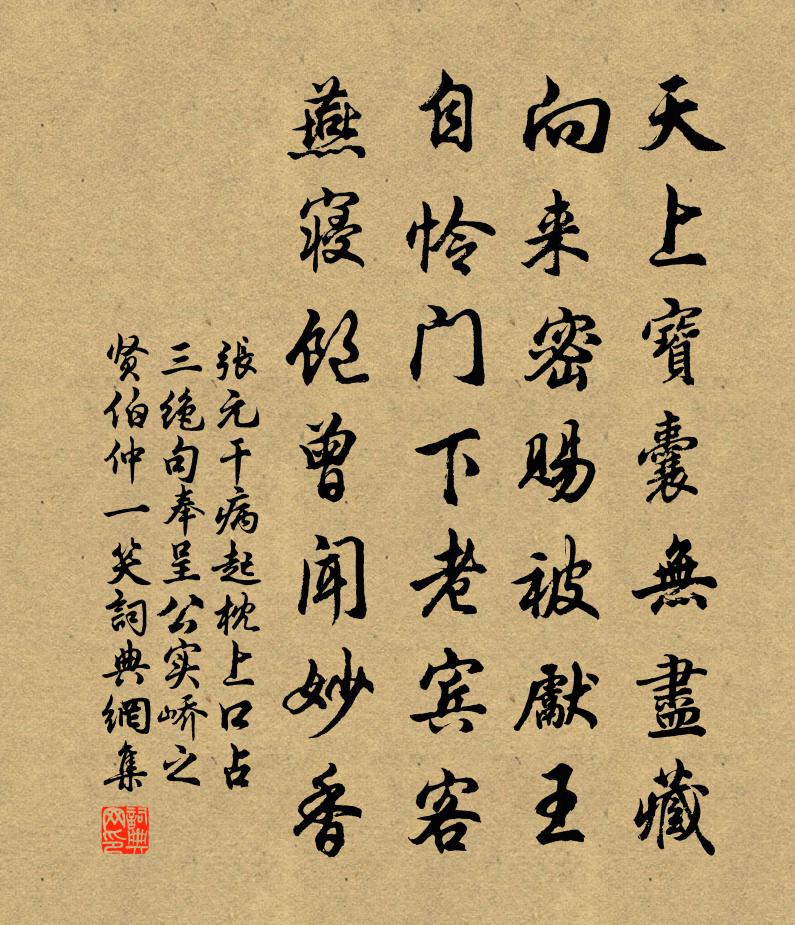 天上寶囊無盡藏
向来密賜被獻王
自怜门下老宾客
燕寝飽曾闻妙香
張元干病起枕上口占
三绝句奉呈公实峤之
贤伯仲一笑詞典網集
詞典网印